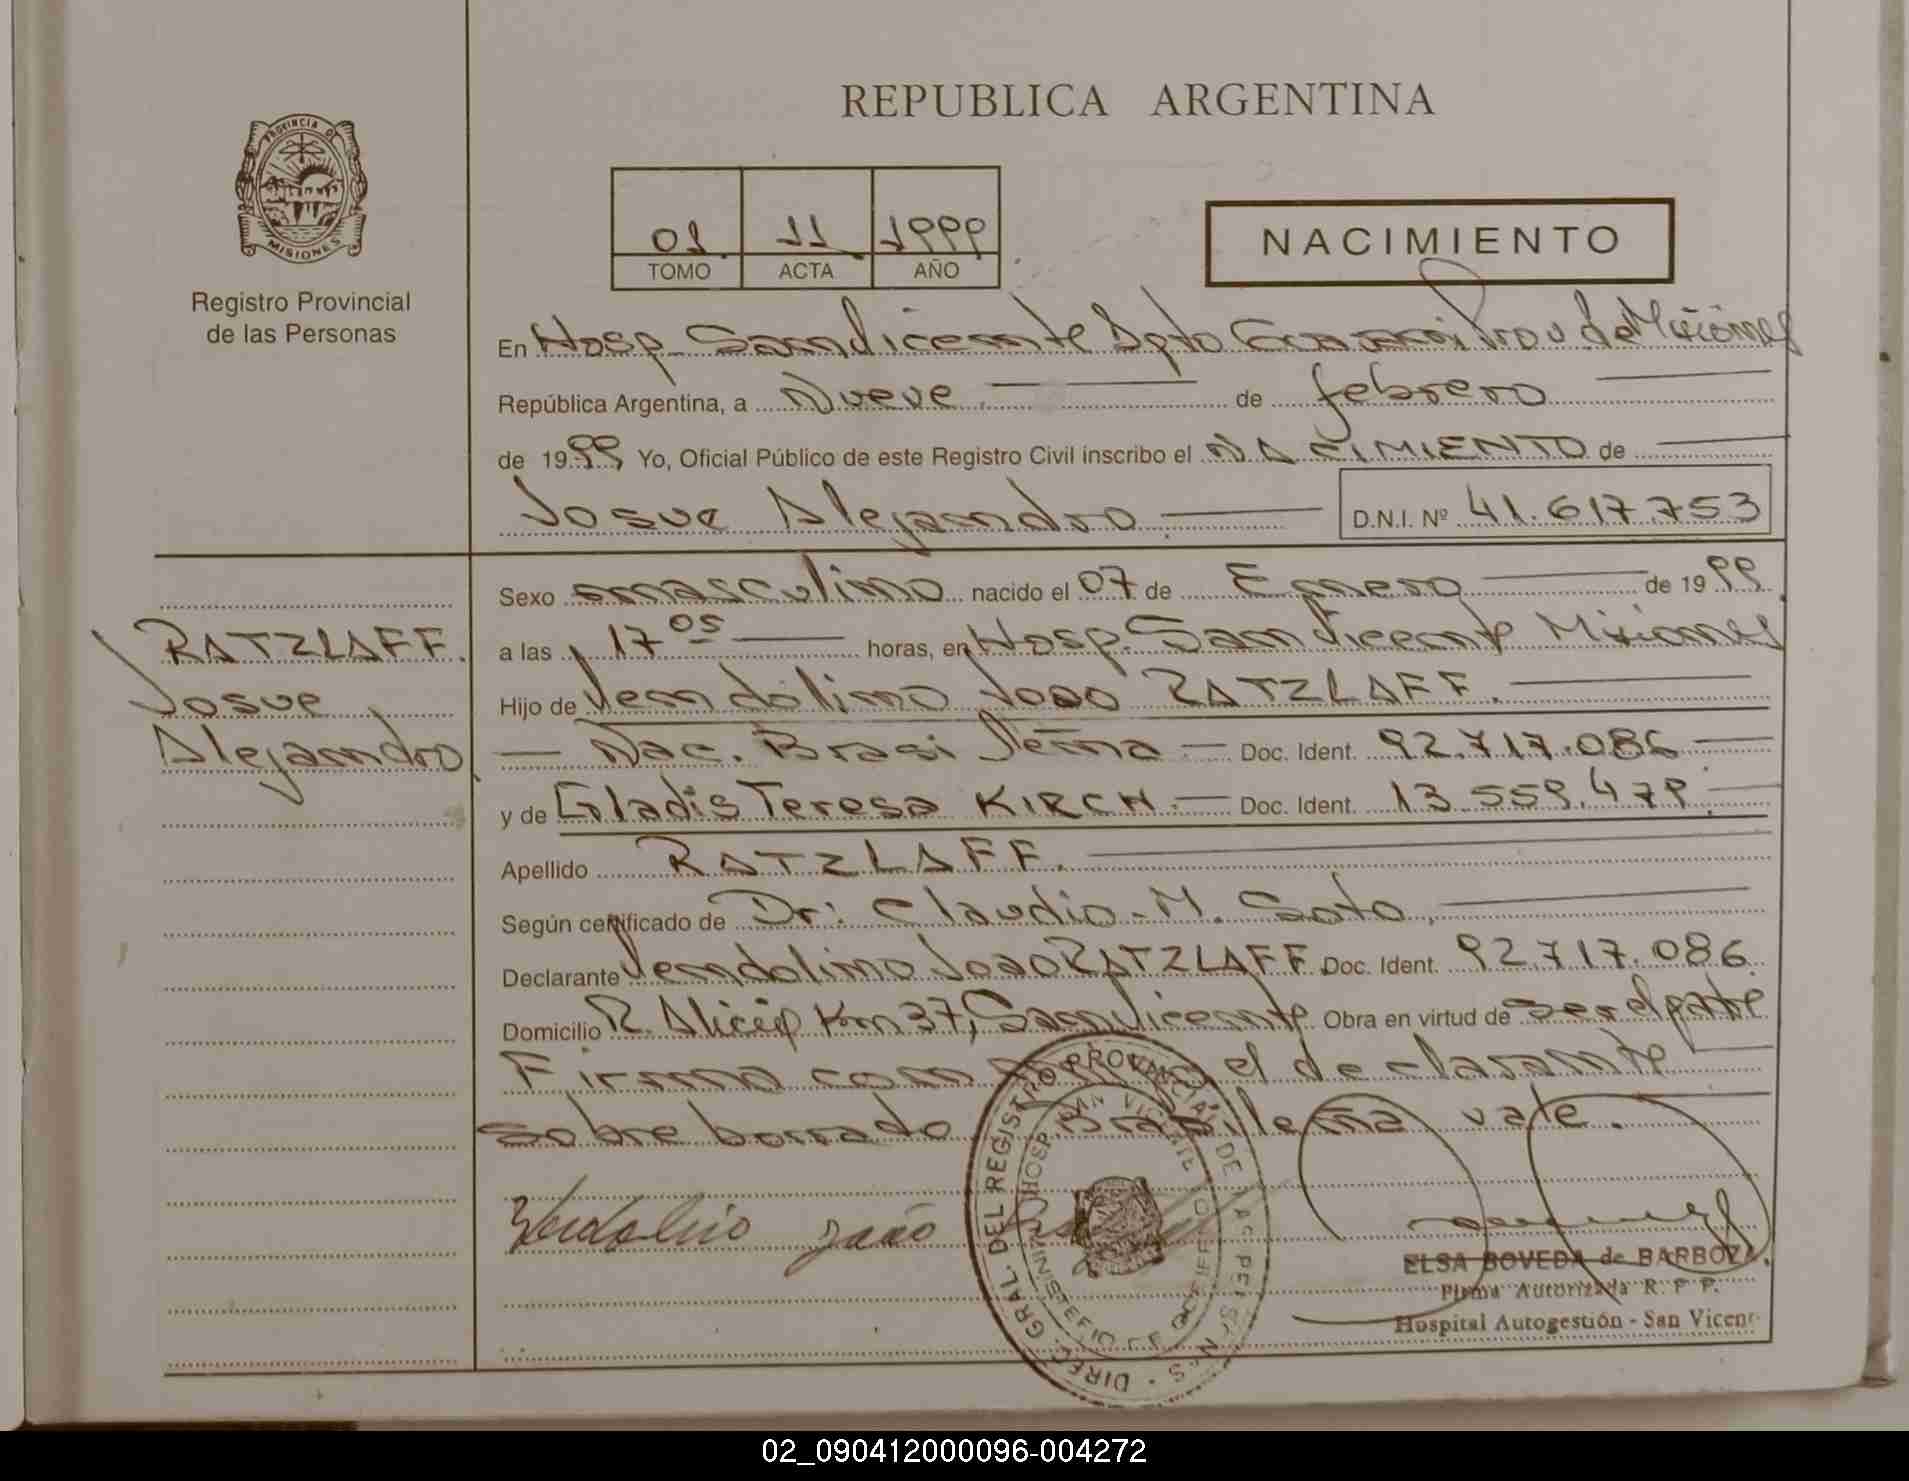 REPUBLICA ARGENTINA
PROVINCIA DE
MISIONES
Registro Provincial
de las Personas
01 11 1999
TOMO ACTA AÑO
NACIMIENTO
En Hosp. San Vicente Dpto Guaraní Prov de Misiones
República Argentina, a Nueve de febrero
de 1999 Yo, Oficial Público de este Registro Civil inscribo el NACIMIENTO de
Josue Alejandro D.N.I. Nº 41.617.753
RATZLAFF.
Josue
Alejandro.
Sexo masculino nacido el 07 de Enero de 1999
a las 17 05 horas, en Hosp. San Vicente Misiones
Hijo de Vendolino Joao RATZLAFF.
Nac. Brasileña Doc. Ident. 92.717.086
y de Gladis Teresa KIRCH. Doc. Ident. 13.559.479
Apellido RATZLAFF.
Según certificado de Dr: Claudio M. Soto.
Declarante Vendolino Joao RATZLAFF Doc. Ident. 92.717.086
Domicilio R. Alicia Km 37, San Vicente Obra en virtud de ser el padre
Firma con el declarante
sobre borrado Brasileña vale.
joão
DIREC. GRAL. DEL REGISTRO PROVINCIAL DE
HOSP SAN VICENTE
ELSA BOVEDA de BARBOZA
Firma Autorizada R. P. P.
Hospital Autogestión - San Vicen
02_090412000096-004272